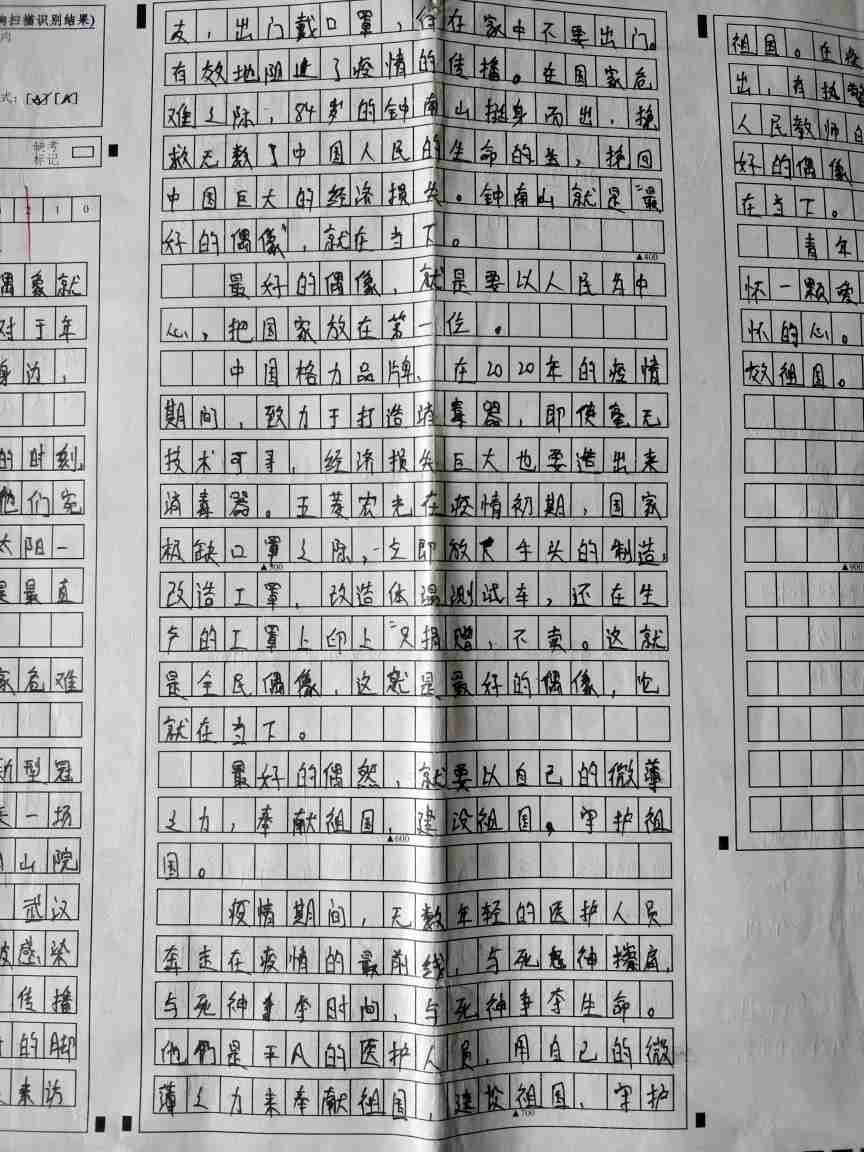 响扫描识别结果)
内
式:
缺考
标记
1 0
偶象就
对于年
身边,
的时刻,
他们宛
太阳一
是最直
家危难
新型冠
是一场
山院
武汉
被感染
传播
的脚
来访
友,出门戴口罩,待在家中不要出门。
有效地阻止了疫情的传播。在国家危
难之际,84岁的钟南山挺身而出,挽
救无数了中国人民的生命的丢,挽回
中国巨大的经济损失。钟南山就是“最
好的偶像”,就在当下。
▲400
最好的偶像,就是要以人民为中
心,把国家放在第一位。
中国格力品牌,在2020年的疫情
期间,致力于打造消毒器,即使毫无
技术可寻,经济损失巨大也要造出来
消毒器。五菱宏光在疫情初期,国家
极缺口罩之际,立即放大牛头的制造,
▲500
改造工罩,改造体温测试车,还在生
产的工罩上印上“只捐赠,不卖。这就
是全民偶像,这就是最好的偶像,它
就在当下。
最好的偶然,就要以自己的微薄
之力,奉献祖国,建设祖国,守护祖
▲600
国。
疫情期间,无数年轻的医护人员
奔走在疫情的最前线,与死神擦肩,
与死神争夺时间,与死神争夺生命。
他們是平凡的医护人员,用自己的微
薄之力来奉献祖国,建设祖国、守护
▲700
祖国。在疫
出,有执
人民教师
好的偶像
在当下。
青年
怀一颗爱
怀的心。
效祖国。
▲900